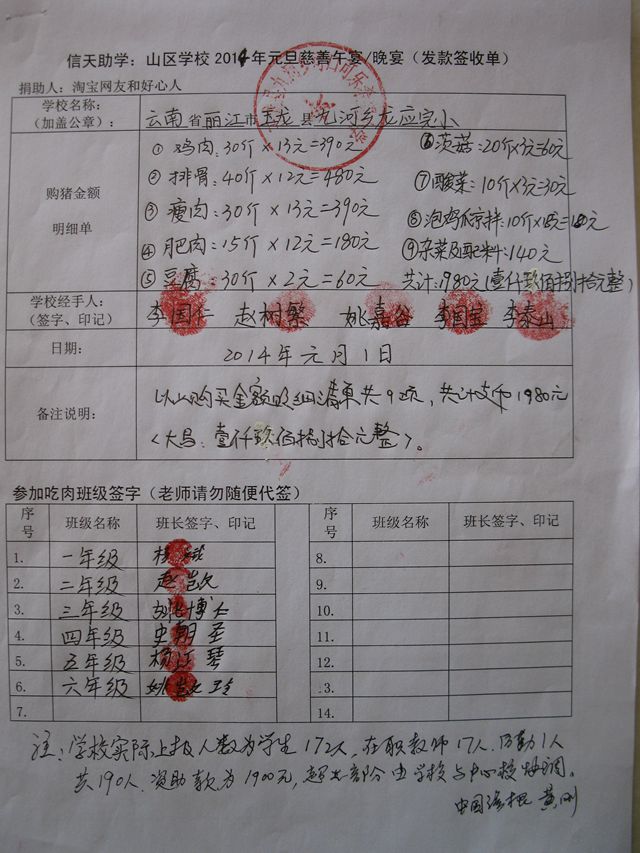 信天助学：山区学校2014年元旦慈善午宴/晚宴（发款签收单）
捐助人：淘宝网友和好心人
学校名称：
（加盖公章）：
云南省丽江市玉龙县九河乡龙应完小
购猪金额
明细单
①鸡肉:30斤×13元=390元
⑥茨菇:20斤×3元=60元
②排骨:40斤×12元=480元
⑦酸菜:10斤×3元=30元
③瘦肉:30斤×13元=390元
⑧泡鸡爪凉拌:10斤×15元=150元
④肥肉:15斤×12元=180元
⑨杂菜及配料:140元
⑤豆腐:30斤×2元=60元
共计:1980元(壹仟玖佰捌拾元整)
学校经手人：
（签字、印记）
李国仁 赵树繁 姚嘉谷 李国宝 李泰山
日期：
2014年元月1日
备注说明：
以上购买金额明细清单共9项，共计支出1980元
<大写:壹仟玖佰捌拾元整>。
参加吃肉班级签字（老师请勿随便代签）
序号 班级名称 班长签字、印记 序号 班级名称 班长签字、印记
1. 一年级 8.
2. 二年级 9.
3. 三年级 10.
4. 四年级 史朝圣 11.
5. 五年级 杨江琴 12.
6. 六年级 13.
7. 14.
注:学校实际上报人数为学生172人,在职教师17人,后勤1人
共190人.资助款为1900元,超出部分由学校与中心校协调。
黄刚